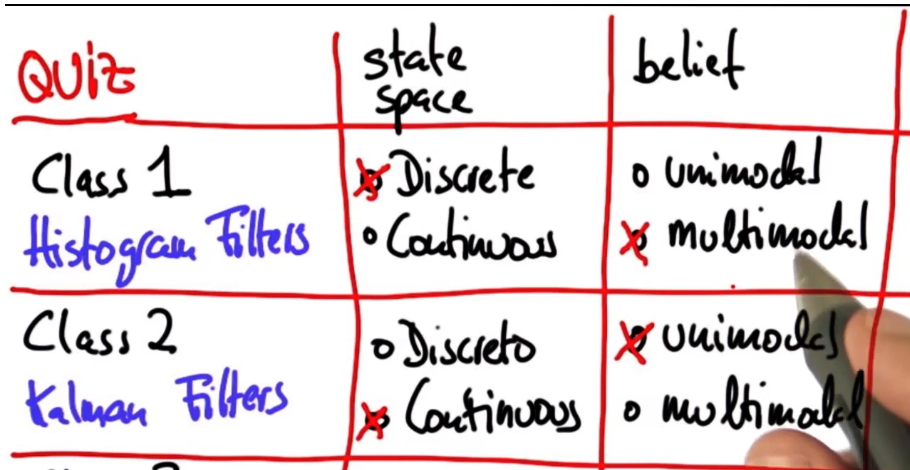 QUIZ
state
space
belief
Class 1
Histogram Filters
Discrete
Continuous
unimodal
multimodal
Class 2
Kalman Filters
Discreto
Continuous
unimodal
multimodal